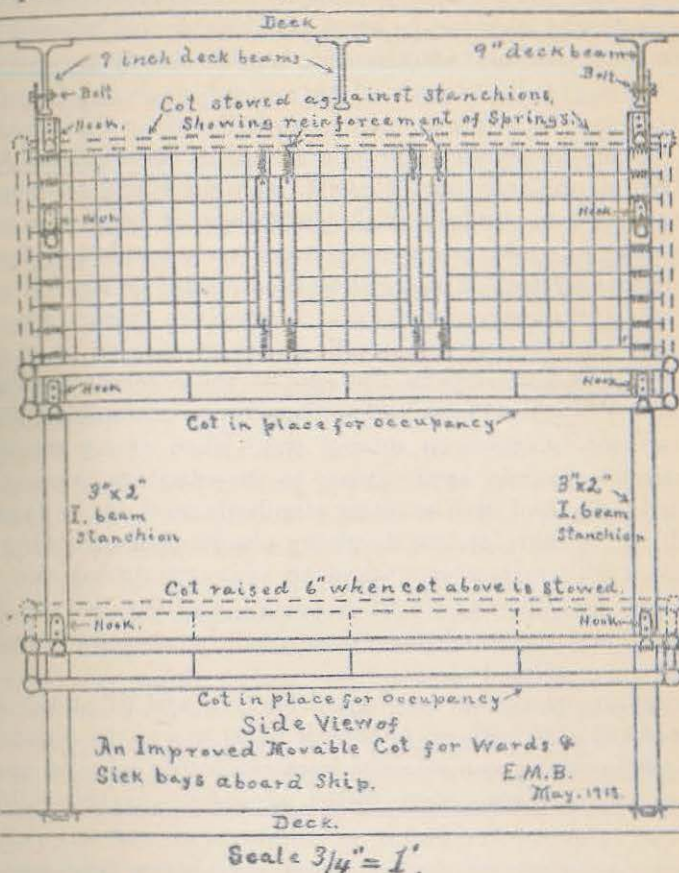 Deck
9 inch deck beams
9" deck beam
Bolt
Bolt
Cot stowed against stanchions,
Showing reinforcement of Springs.
Hook.
Hook
Hook
Hook
Hook
Cot in place for occupancy
3"x2"
I. beam
Stanchion
3"x2"
I. beam
Stanchion
Cot raised 6" when cot above is stowed.
Hook.
Hook
Cot in place for occupancy
Side View of
An Improved Movable Cot for Wards &
Sick bays aboard Ship.
E.M.B.
May. 1918.
Deck.
Scale 3/4" = 1'.